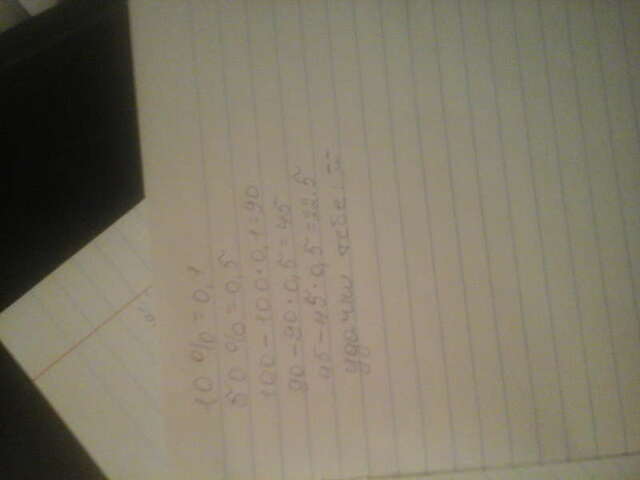 10 % = 0,1
50 % = 0,5
100 - 100 · 0,1 = 90
90 - 90 · 0,5 = 45
45 - 45 · 0,5 = 22.5
удачки тебе!